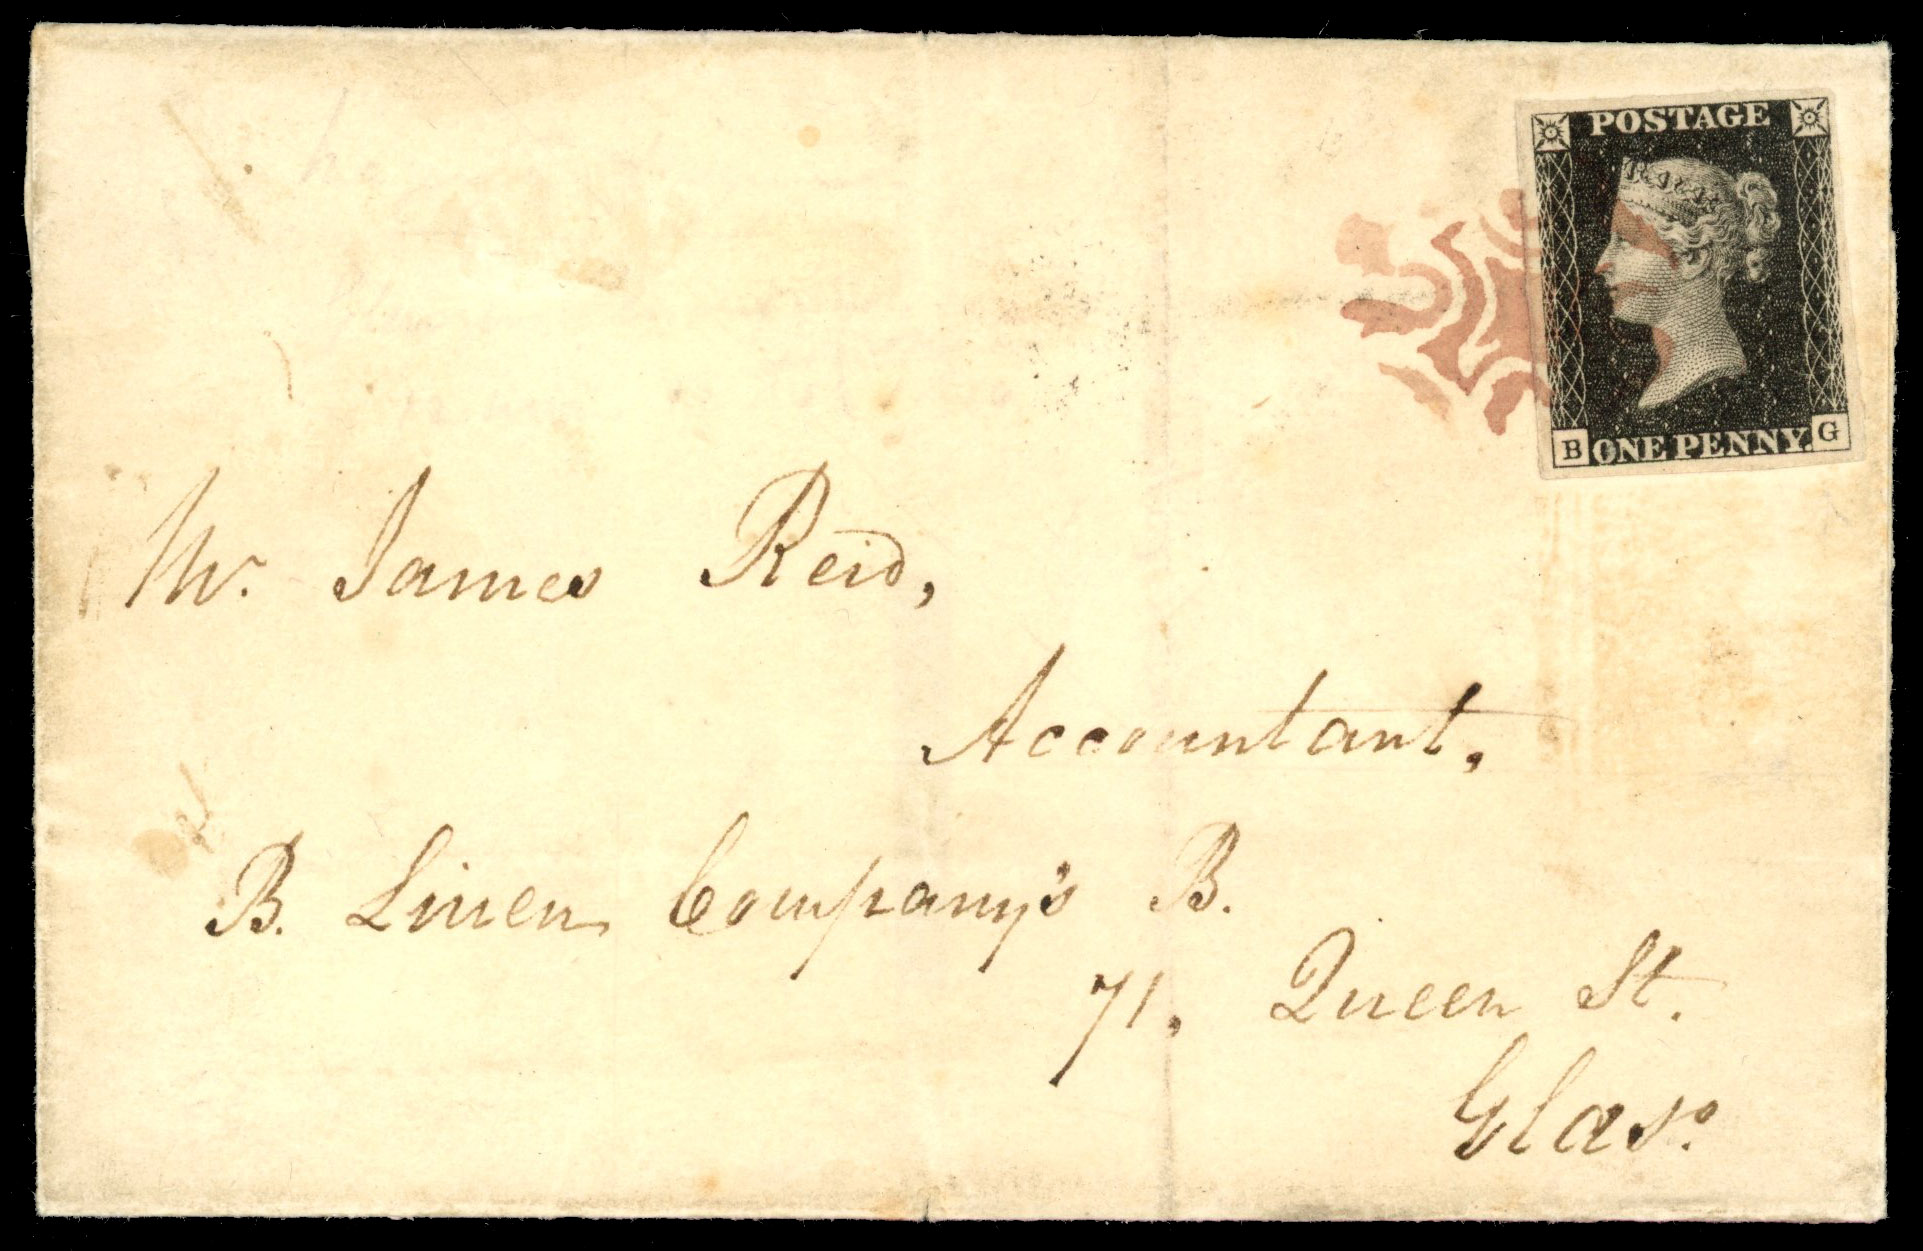 POSTAGE
B ONE PENNY. G
Mr. James Reid,
Accountant.
B. Linen Company's B.
71, Queen St.
Glaso.